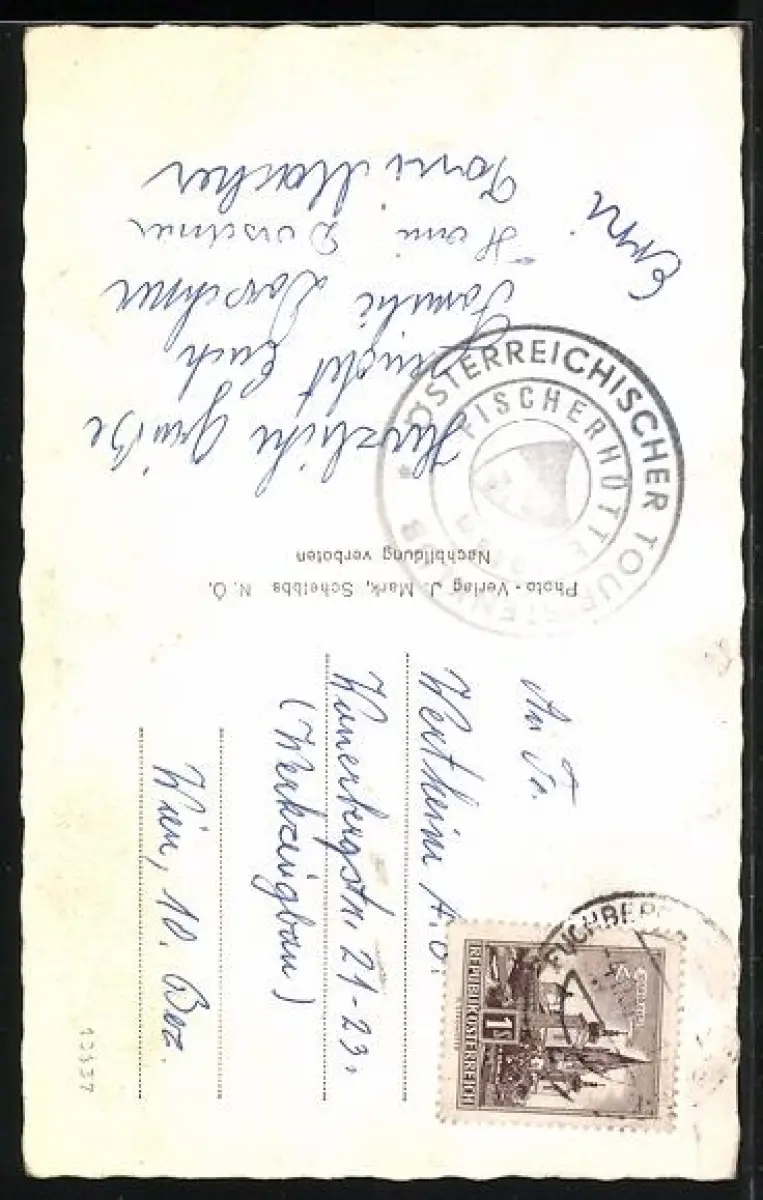 Herzliche Grüße
sendet Euch
Familie Dorschner
Hani Dorschner
Toni Macher
Erni
ÖSTERREICHISCHER TOURISTENKLUB
FISCHERHÜTTE
Photo-Verlag J. Mark, Scheibbs N. Ö.
Nachbildung verboten
An Fa.
Wertheim A.G.
Wienerbergstr. 21-23.
(Werkzeugbau)
Wien, 10. Bez.
PUCHBERG
REPUBLIK ÖSTERREICH
1S